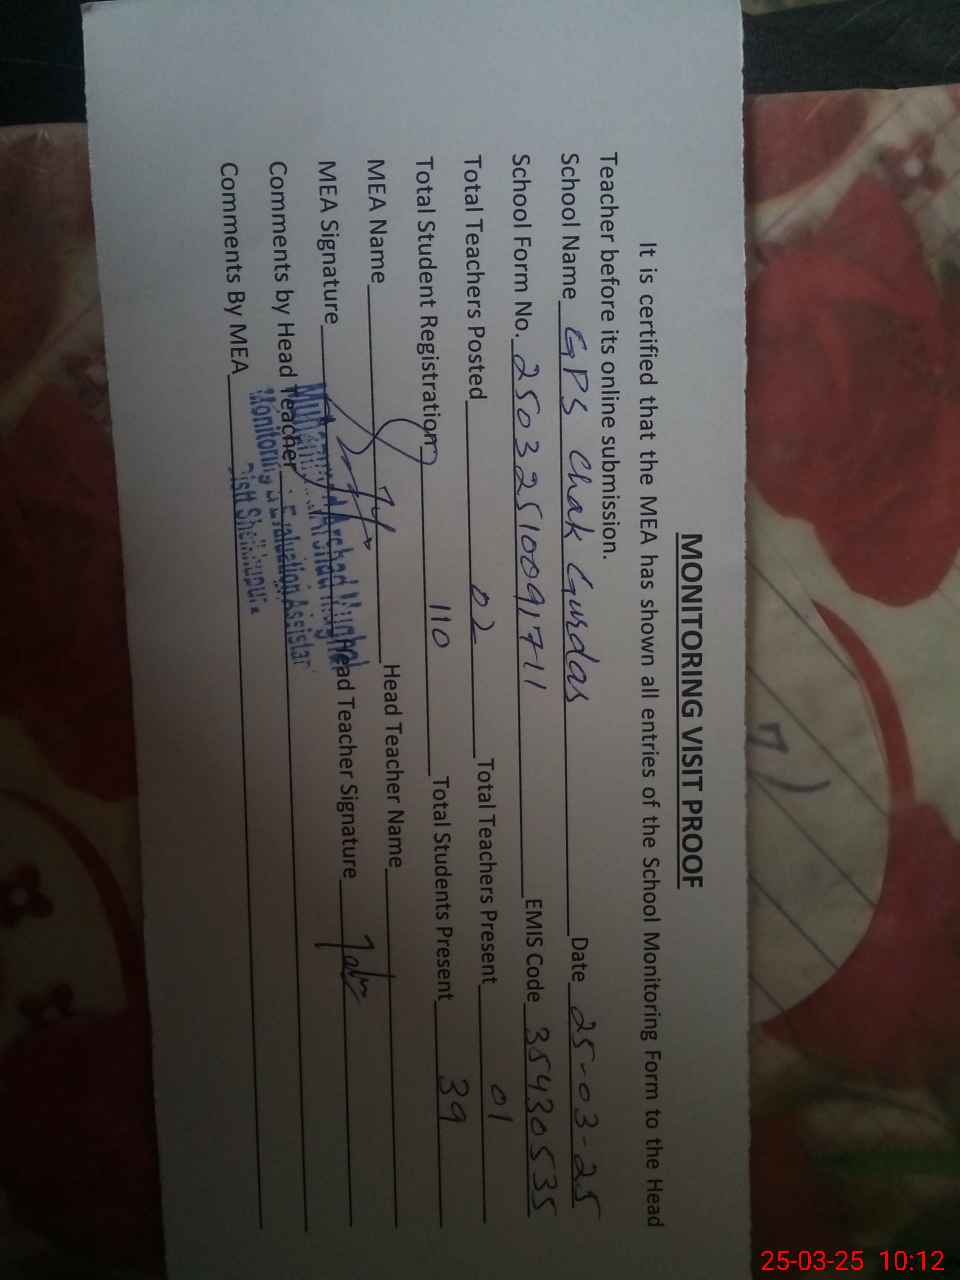 MONITORING VISIT PROOF
It is certified that the MEA has shown all entries of the School Monitoring Form to the Head
Teacher before its online submission.
School Name GPS Chak Gurdas Date 25-03-25
School Form No. 25032510091711 EMIS Code 35430535
Total Teachers Posted 02 Total Teachers Present 01
Total Student Registration 110 Total Students Present 39
MEA Name Head Teacher Name
MEA Signature Head Teacher Signature
Comments by Head Teacher
Comments By MEA
Muhammad Arshad Mughal
Monitoring & Evaluation Assistant
Distt Sheikhupura
7)
25-03-25 10:12